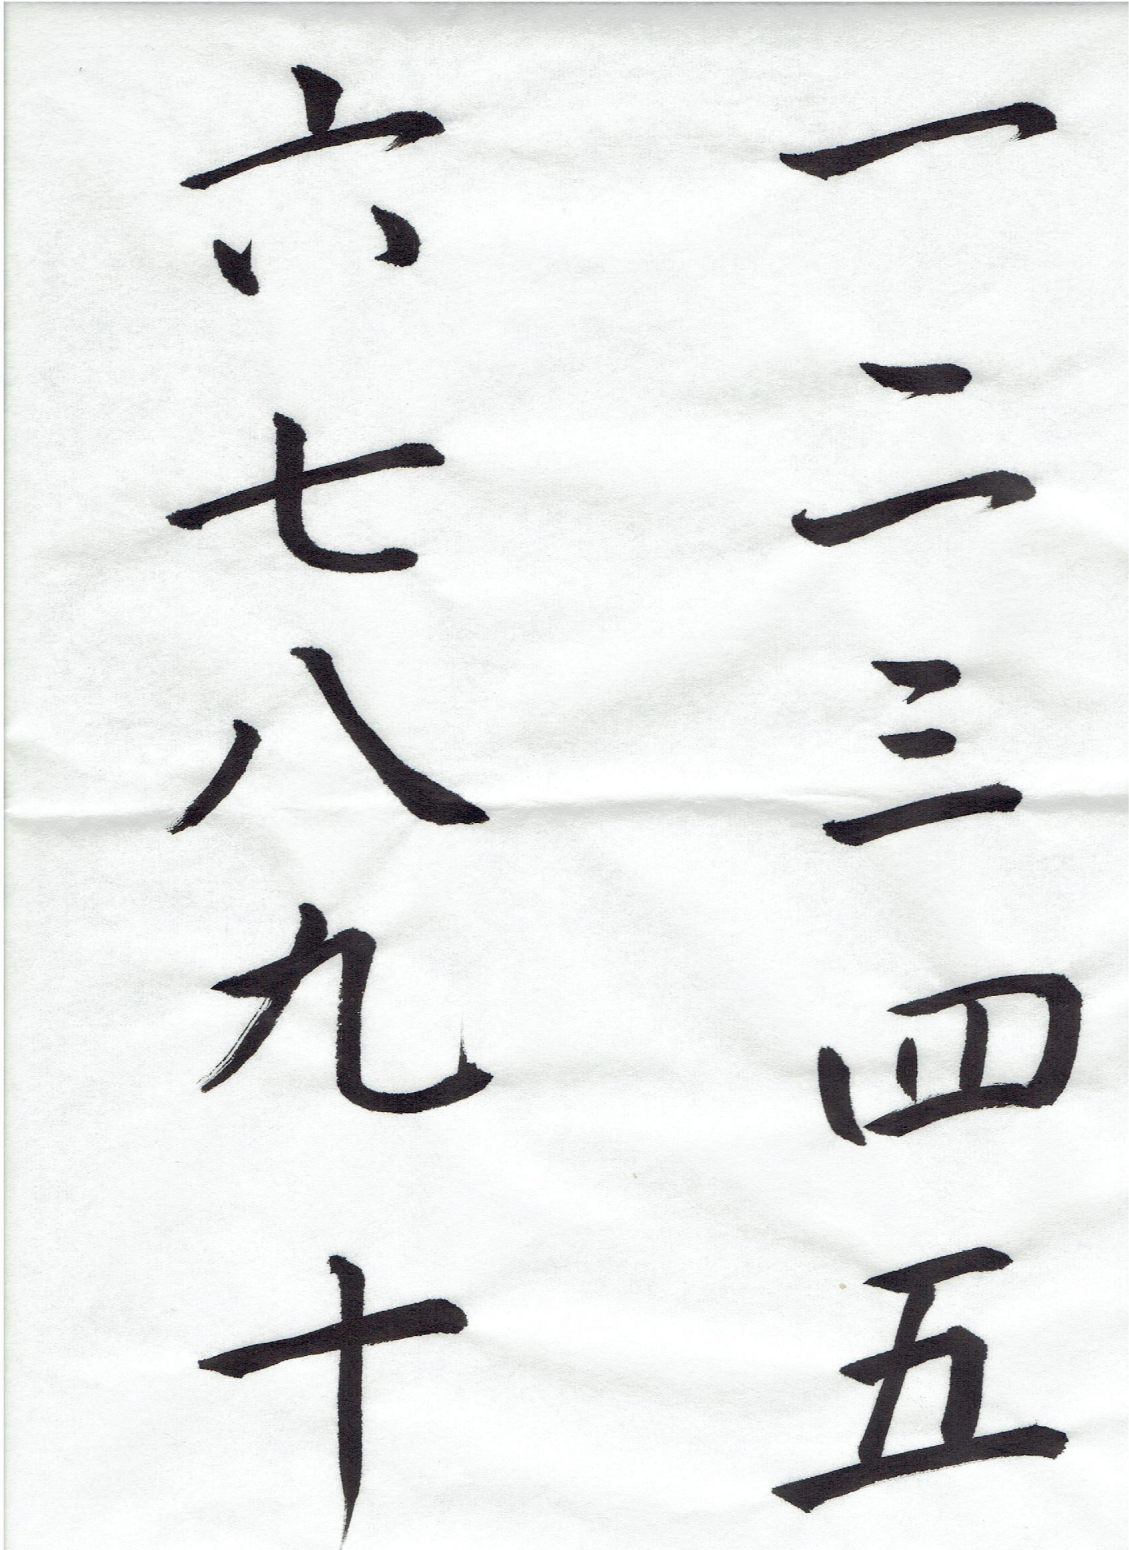 一二三四五
六七八九十